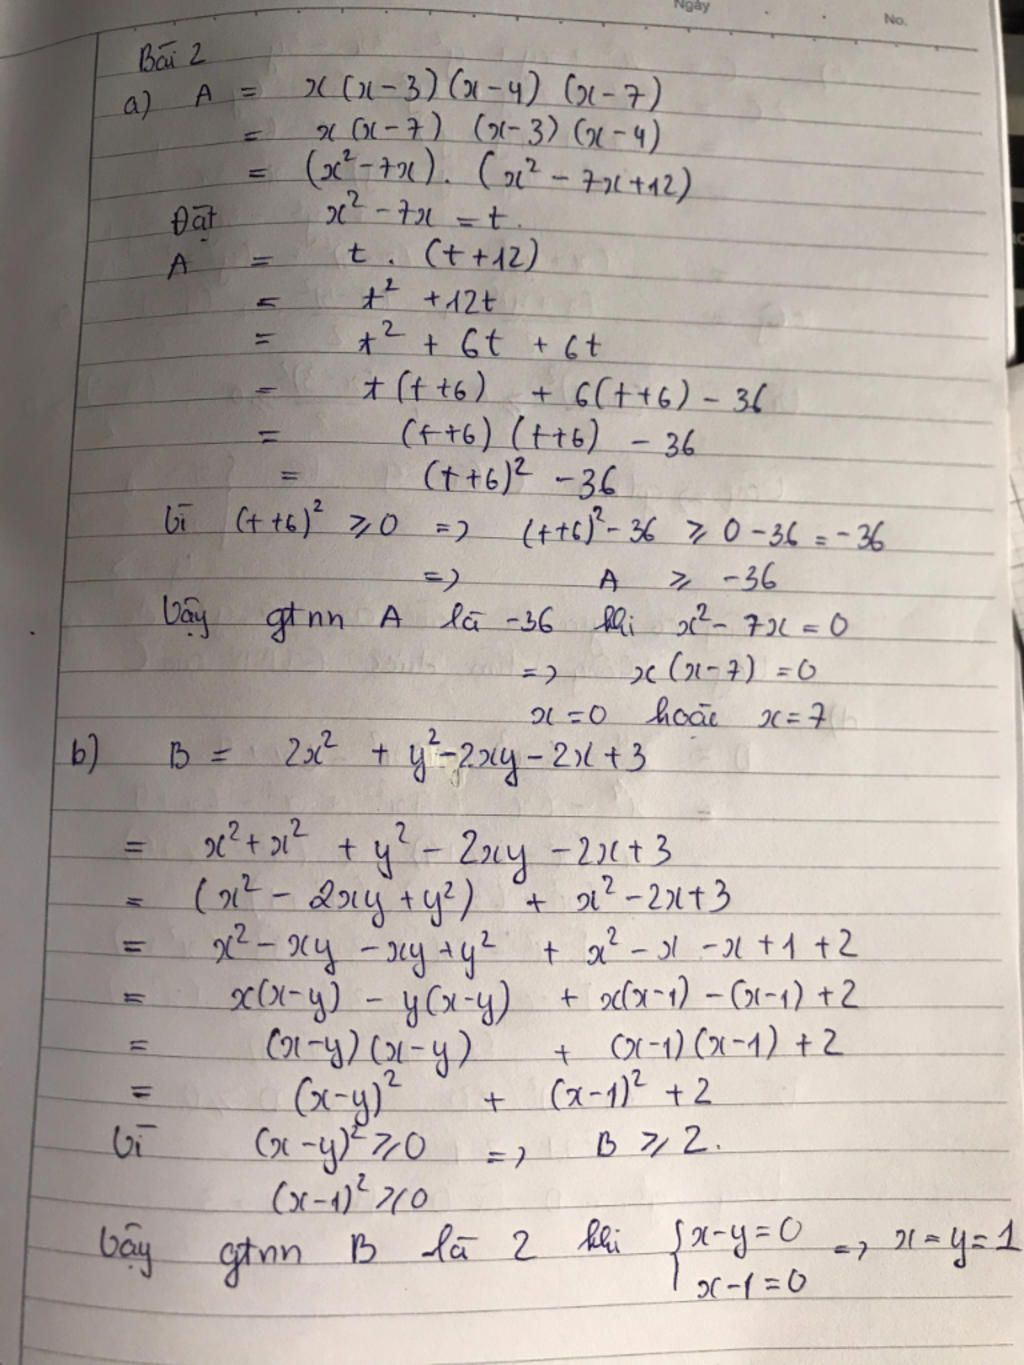 Ngày
No.
Bài 2
a) A = x(x-3)(x-4)(x-7)
= x(x-7)(x-3)(x-4)
= (x²-7x).(x²-7x+12)
Đặt x²-7x=t.
A = t.(t+12)
= t²+12t
= t²+6t+6t
= t(t+6) + 6(t+6) - 36
= (t+6)(t+6) - 36
= (t+6)² - 36
Vì (t+6)² ⩾ 0 => (t+6)²-36 ⩾ 0-36=-36
=> A ⩾ -36
Vậy gtnn A là -36 khi x²-7x=0
=> x(x-7)=0
x=0 hoặc x=7
b) B = 2x² + y²-2xy-2x+3
= x²+x² + y² - 2xy - 2x+3
= (x²-2xy+y²) + x²-2x+3
= x²-xy-xy+y² + x²-x-x+1+2
= x(x-y) - y(x-y) + x(x-1) - (x-1) +2
= (x-y)(x-y) + (x-1)(x-1) +2
= (x-y)² + (x-1)² +2
Vì (x-y)² ⩾ 0 => B ⩾ 2.
(x-1)² ⩾ 0
Vậy gtnn B là 2 khi { x-y=0 => x=y=1
x-1=0